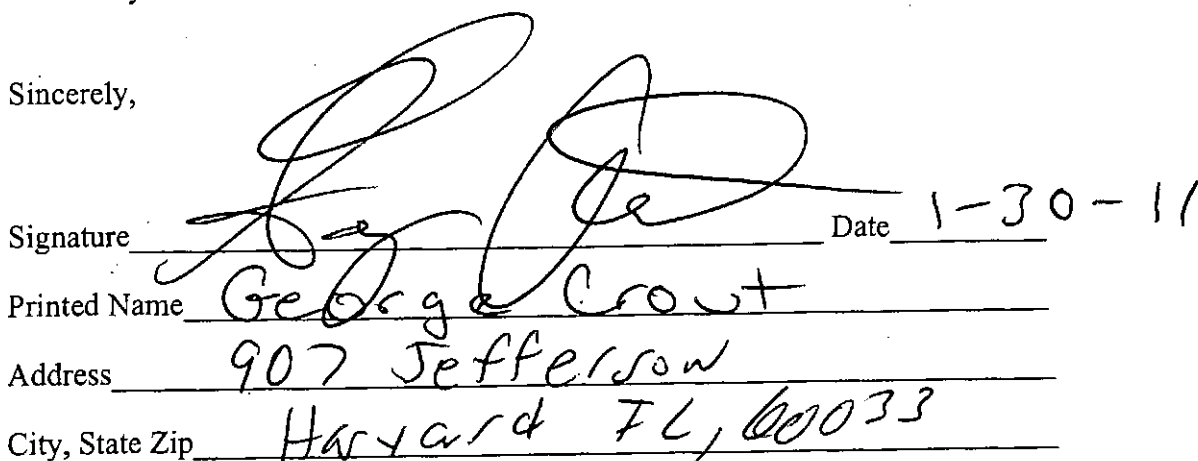 Sincerely,
Signature Date 1-30-11
Printed Name George Crout
Address 907 Jefferson
City, State Zip Harvard IL, 60033